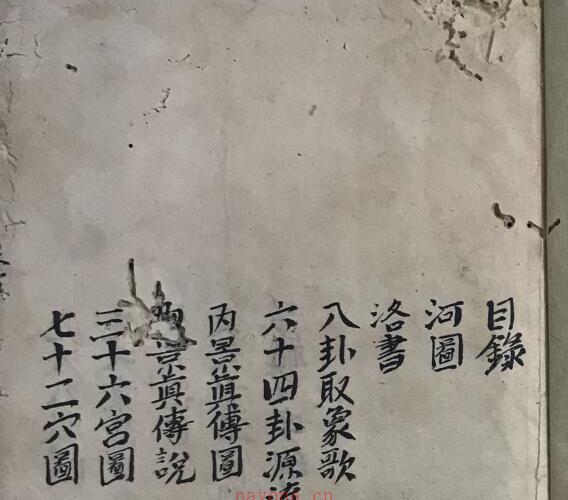 目錄
河圖
洛書
八卦取象歌
六十四卦源流
丙景眞傳圖
景眞傳說
三十六宮圖
七十二穴圖